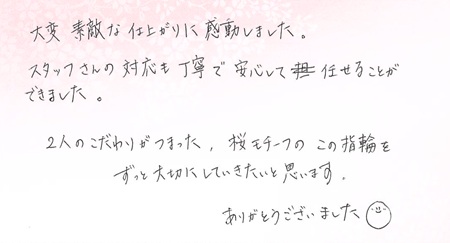 大変 素敵な仕上がりに感動しました。
スタッフさんの対応も丁寧で安心して任せることが
できました。
2人のこだわりがつまった、桜モチーフの この指輪を
ずっと大切にしていきたいと思います。
ありがとうございました